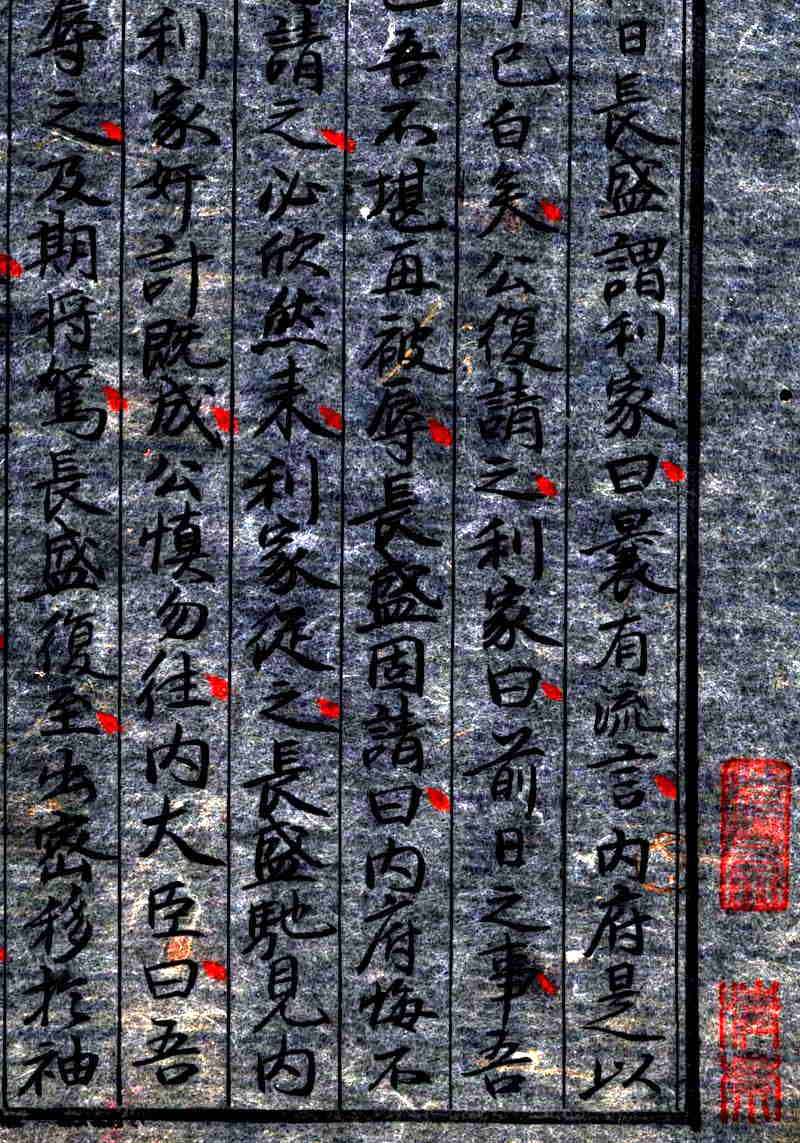 日長盛謂利家曰曩有流言内府是以
已白矣公復請之利家曰前日之事吾
吾不堪再被辱長盛固請曰内府悔不
請之必欣然来利家從之長盛馳見内
利家奸計既成公慎勿往内大臣曰吾
辱之及期将駕長盛復至出密移於袖